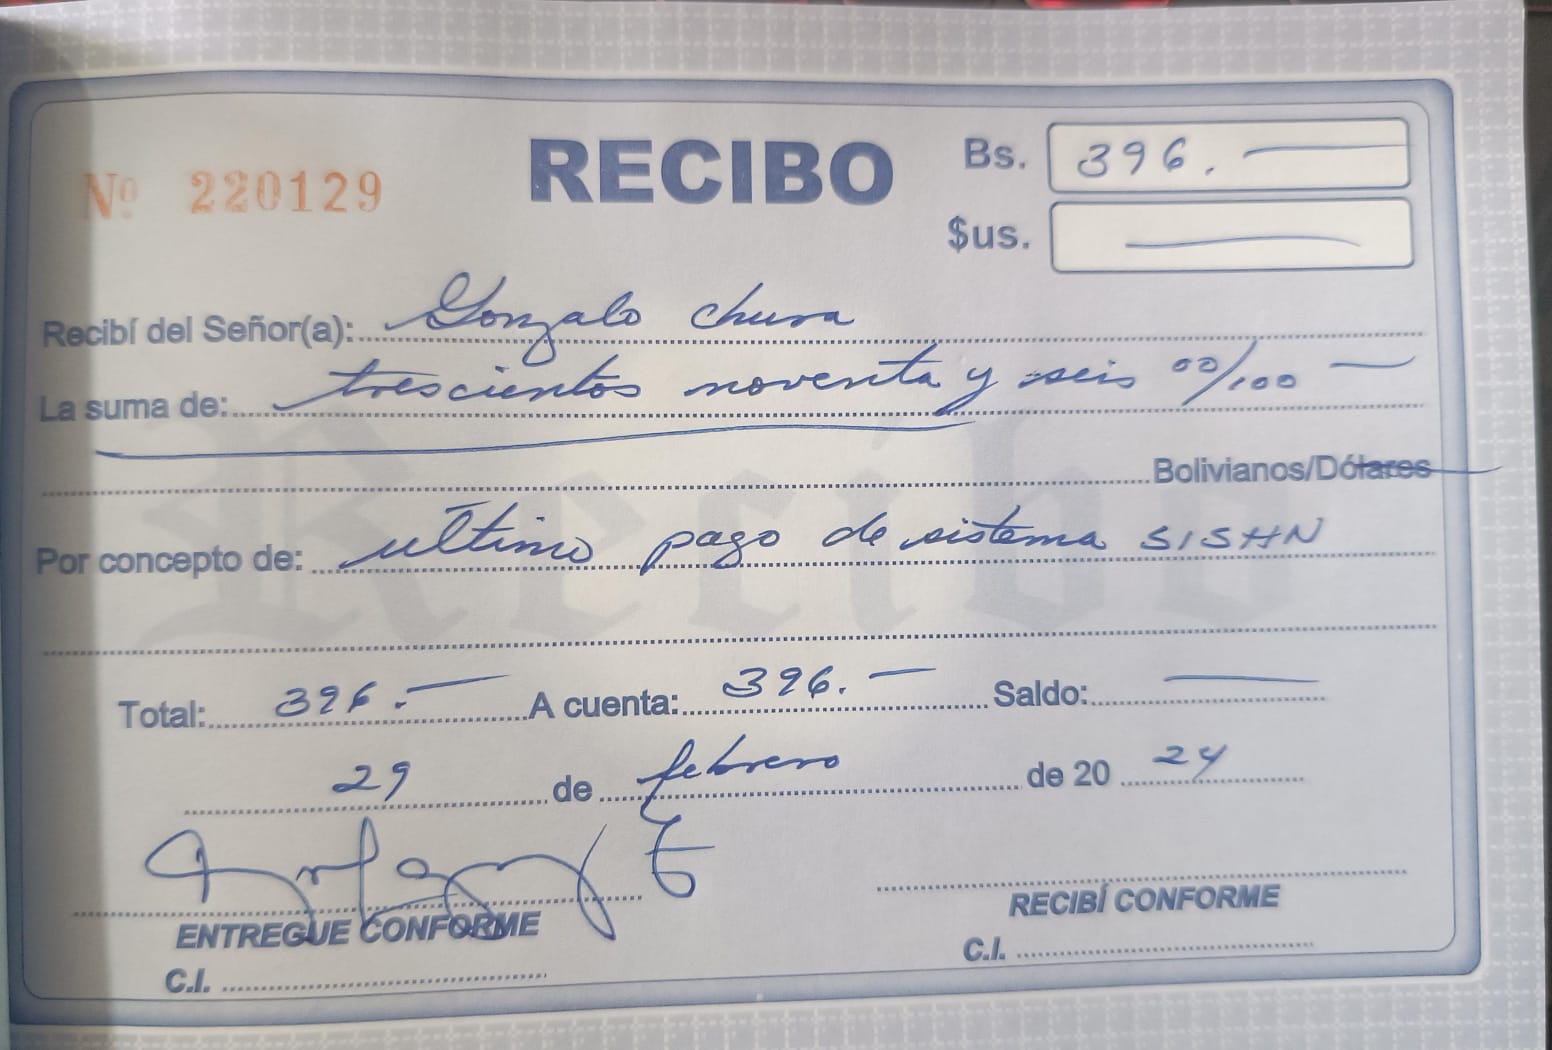 Nº 220129
RECIBO
Bs. 396.—
$us. —
Recibí del Señor(a): Gonzalo Chura
La suma de: trescientos noventa y seis 00/100 —
Bolivianos/Dólares
Por concepto de: ultimo pago de sistema SISHN
Total: 396.— A cuenta: 396.— Saldo: —
29 de febrero de 20 24
ENTREGUE CONFORME
C.I.
RECIBÍ CONFORME
C.I.
Recibo